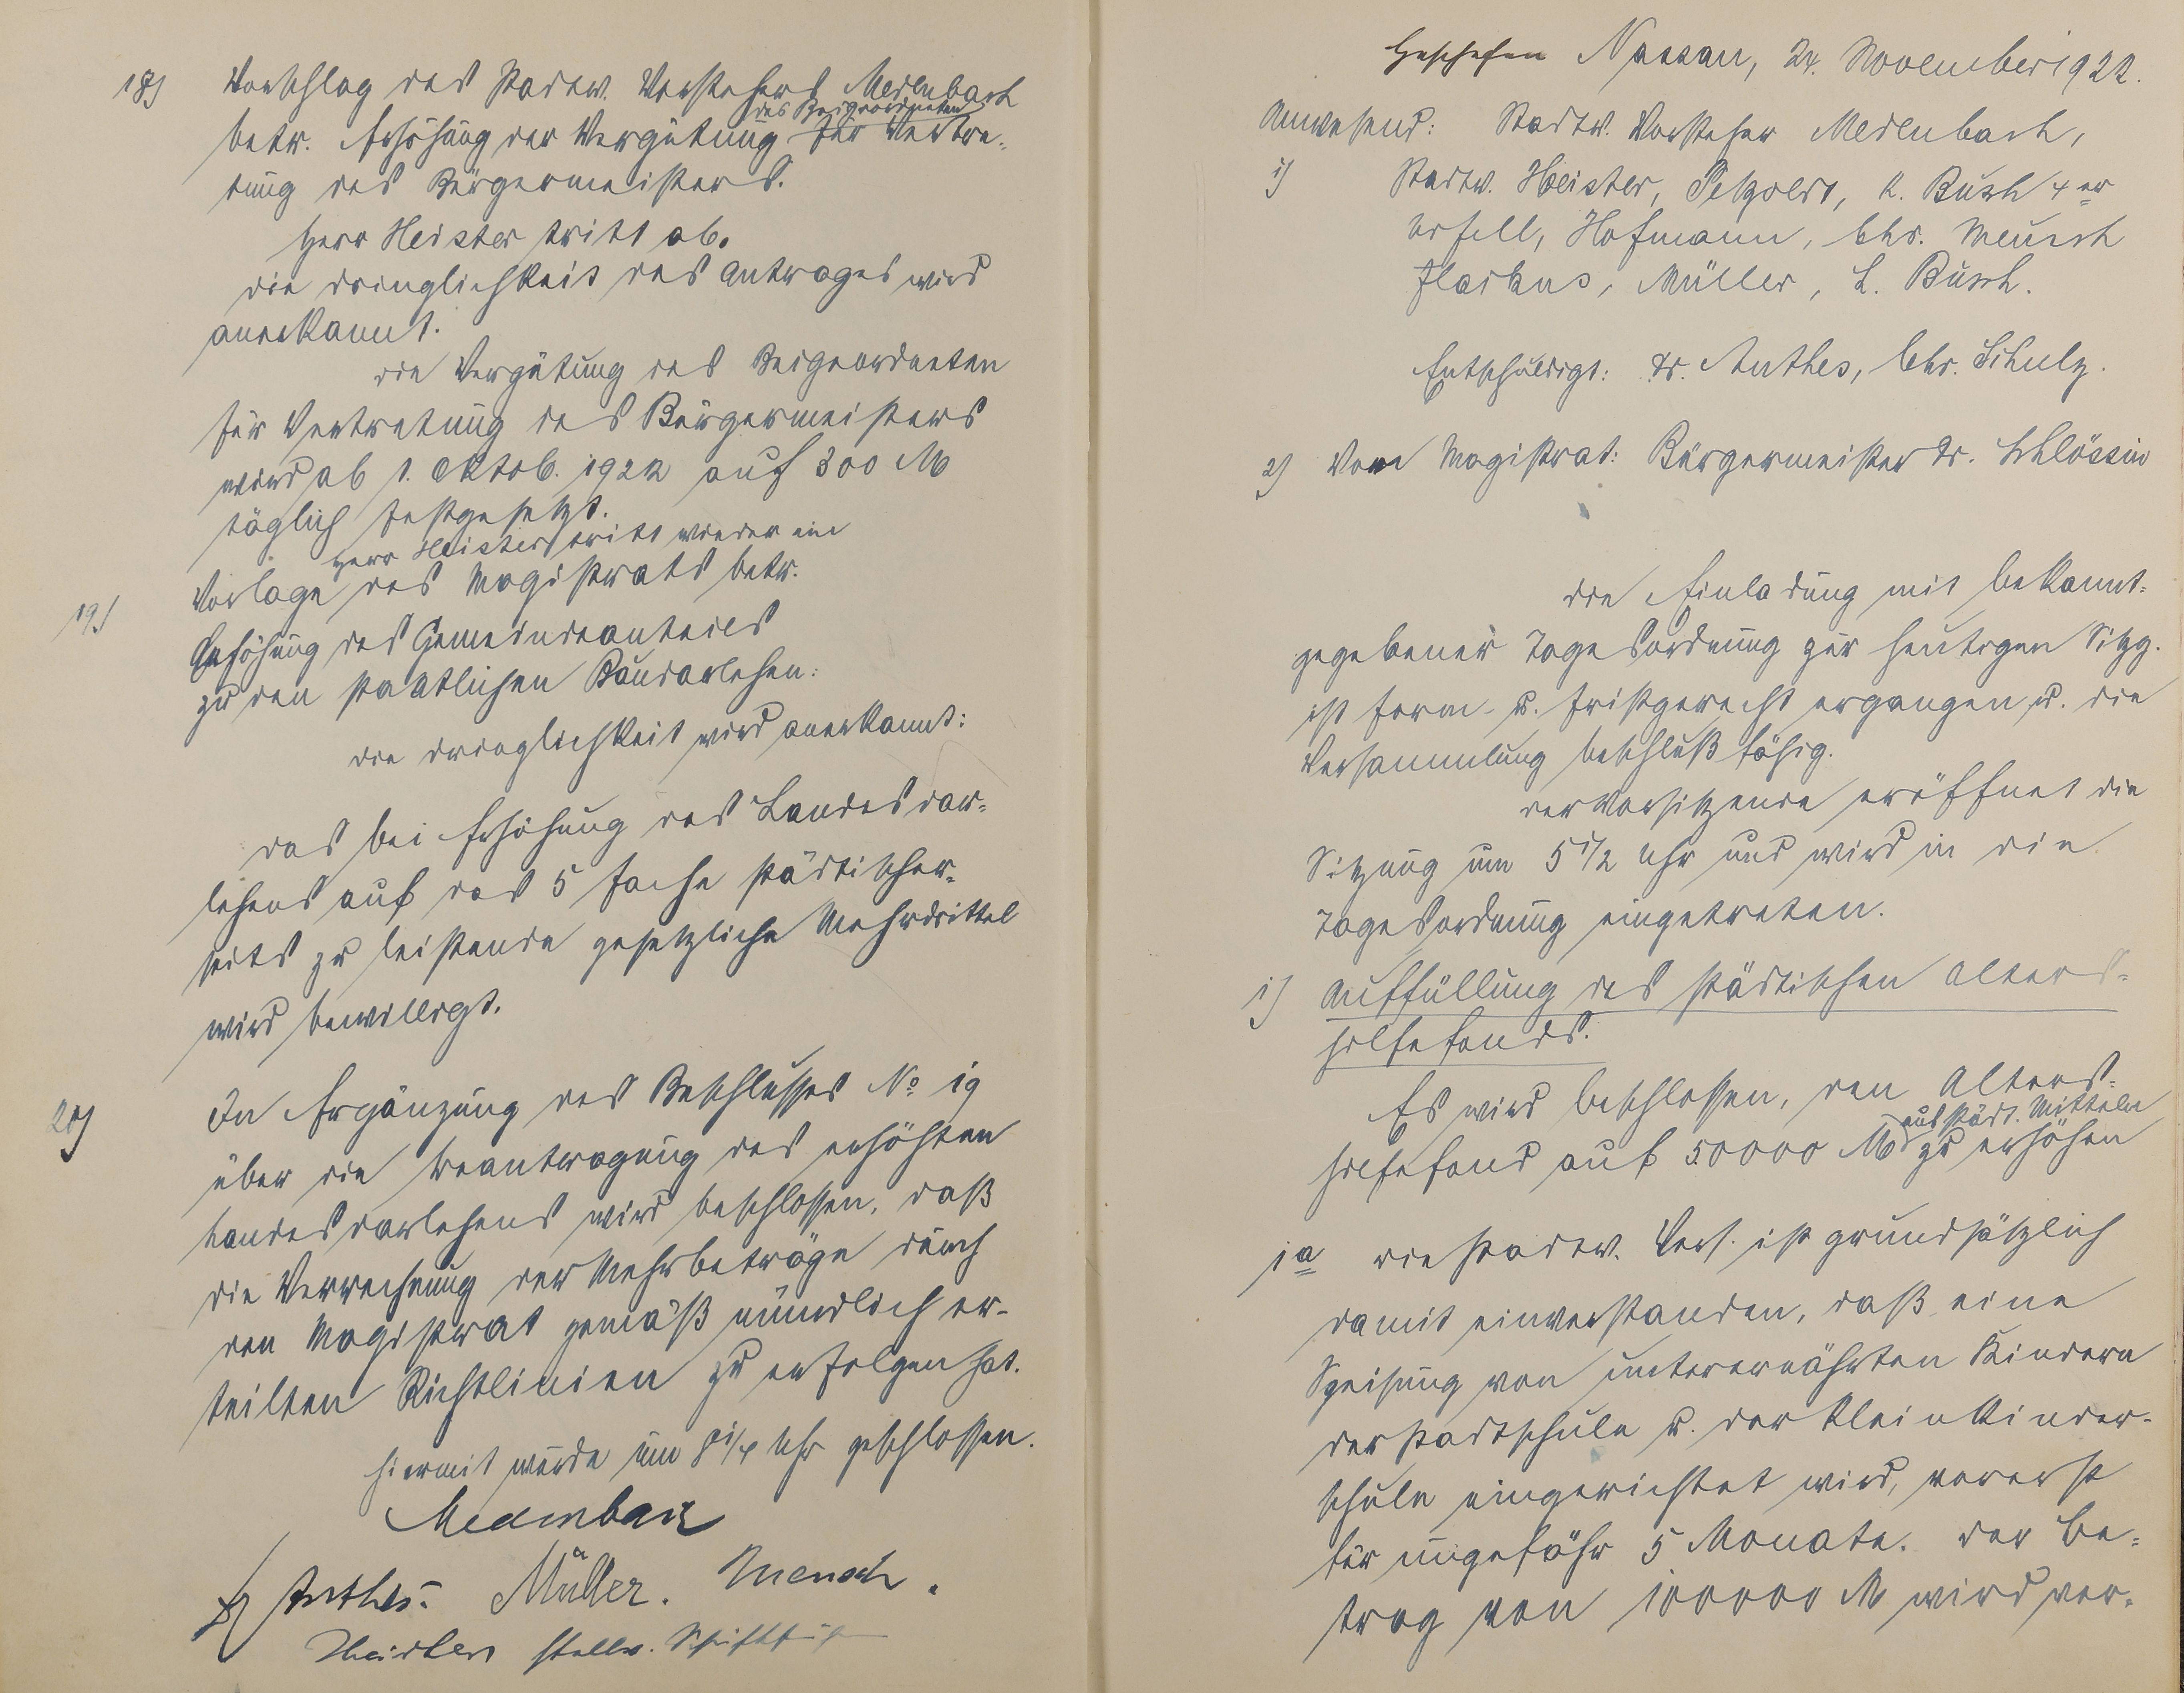 18) Vorschlag des Stadtv. Vorstehers Medenbach
des Beigeordneten
betr. Erhöhung der Vergütung für Vertre-
tung des Bürgermeisters.
Herr Heister tritt ab.
Die Dringlichkeit des Antrages wird
anerkannt.
Die Vergütung des Beigeordneten
für Vertretung des Bürgermeisters
wird ab 1. Oktob. 1922 auf 300 M
täglich festgesetzt.
Herr Heister tritt wieder ein
19) Vorlage des Magistrats betr.
Erhöhung des Gemeindeanteils
zu den staatlichen Baudarlehen:
Die Dringlichkeit wird anerkannt:
Das bei Erhöhung des Landesdar-
lehens auf das 5 fache städtischer-
seits zu leistende gesetzliche Mehrdrittel
wird bewilligt.
20) In Ergänzung des Beschlusses No 19
über die Beantragung des erhöhten
Landesdarlehens wird beschlossen, daß
die Verrechnung der Mehrbeträge durch
den Magistrat gemäß mündlich er-
teilten Richtlinien zu erfolgen hat.
Hiermit wurde um 8 1/4 Uhr geschlossen.
Medenbach
Anthes. Müller. Mensch.
Heister stellv. Schriftführ
Geschehen Nassau, 24. November 1922.
Anwesend: Stadtv. Vorsteher Medenbach,
1) Stadtv. Heister, Petzoldt, K. Busch 4er
Unfell, Hofmann, Chr. Mensch
Flackus, Müller, L. Busch.
Entschuldigt: Dr. Anthes, Chr. Schulz.
2) Vom Magistrat: Bürgermeister Dr. Schlössin
Die Einladung mit bekannt-
gegebener Tagesordnung zur heutigen Sitzg.
ist form- u. fristgerecht ergangen u. die
Versammlung beschlußfähig.
Der Vorsitzende eröffnet die
Sitzung um 5 1/2 Uhr und wird in die
Tagesordnung eingetreten.
1) Auffüllung des städtischen Alters-
hilfefonds.
Es wird beschlossen, den Alters-
aus städt. Mitteln
hilfefond auf 50000 M zu erhöhen
1a Die Stadtv. Vers. ist grundsätzlich
damit einverstanden, daß eine
Speisung von unterernährten Kindern
der Stadtschule u. der Kleinkinder-
schule eingerichtet wird, vorerst
für ungefähr 5 Monate. Der Be-
trag von 100000 M wird vor-